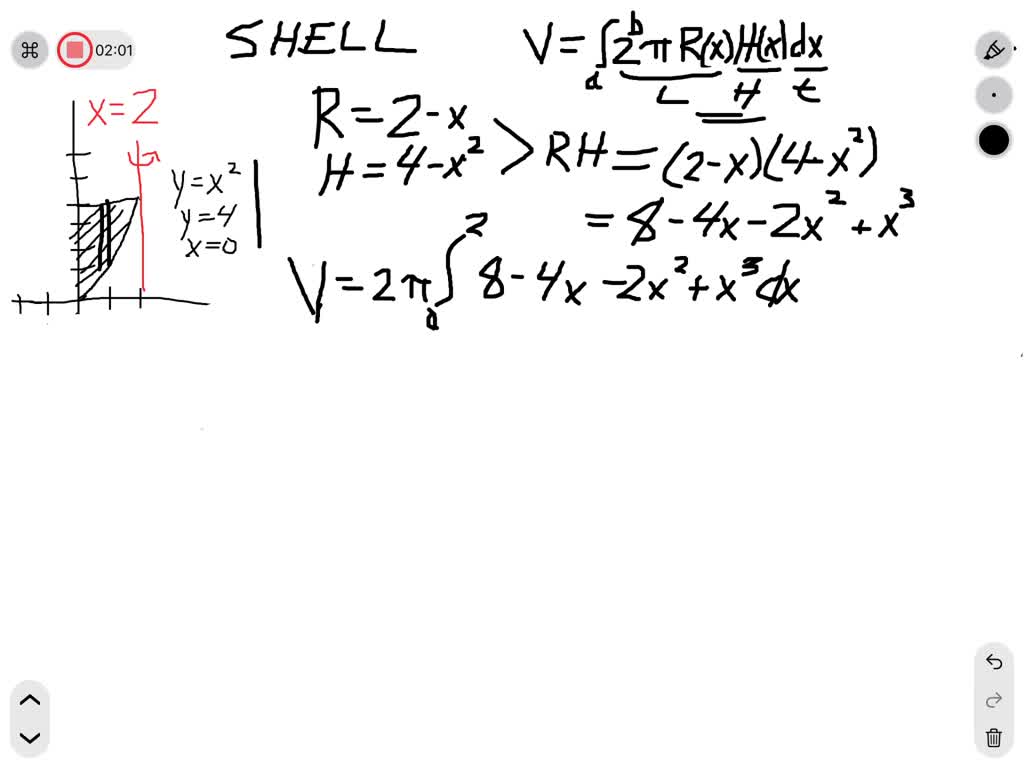 02:01
SHELL
V = ∫_a^b 2πR(x)H(x)dx
L H t
x=2
R = 2-x
H = 4-x² > RH = (2-x)(4-x²)
y=x²
y=4
x=0
= 8-4x-2x²+x³
V = 2π∫_0^2 8-4x-2x²+x³ dx